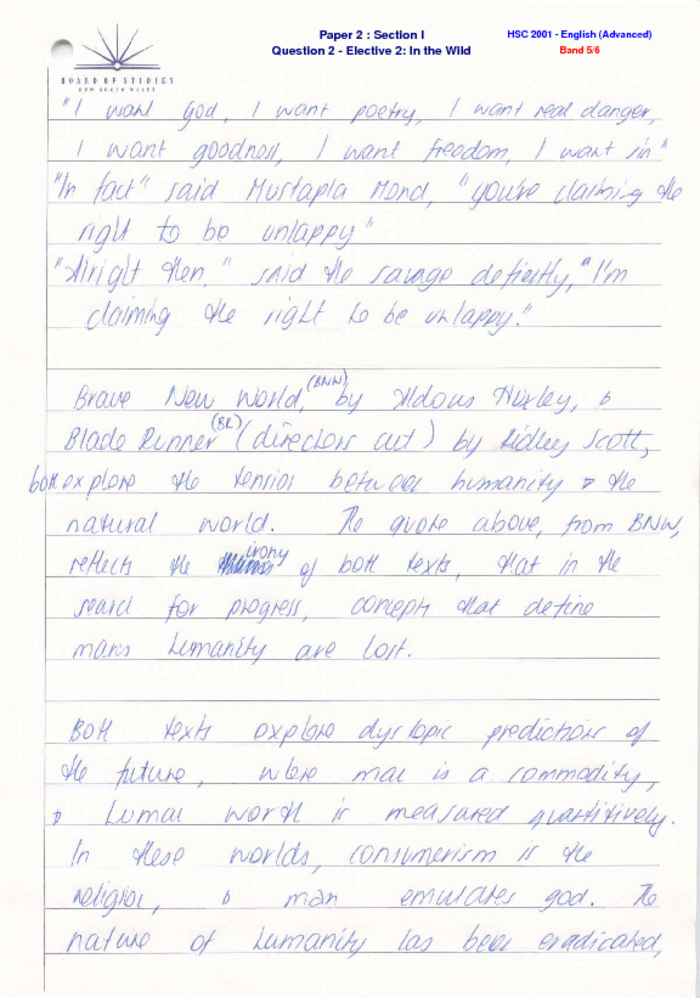 Paper 2 : Section I
Question 2 - Elective 2: In the Wild
HSC 2001 - English (Advanced)
Band 5/6
BOARD OF STUDIES
NEW SOUTH WALES
"I want God, I want poetry, I want real danger,
I want goodness, I want freedom, I want sin"
"In fact" said Mustapla Mond, "you're claiming the
right to be unhappy"
"Alright then," said the savage defiently, "I'm
claiming the right to be unhappy."
Brave New World, (BNW) by Aldous Huxley, &
Blade Runner (BR) (directors cut) by Ridley Scott,
both explore the tension between humanity & the
natural world. The quote above, from BNW,
reflects the irony of both texts, that in the
search for progress, concepts that define
mans humanity are lost.
Both texts explore dystopic predictions of
the future, where man is a commodity,
& human worth is measured quantitively.
In these worlds, consumerism is the
religion, & man emulates god. The
nature of humanity has been eradicated,